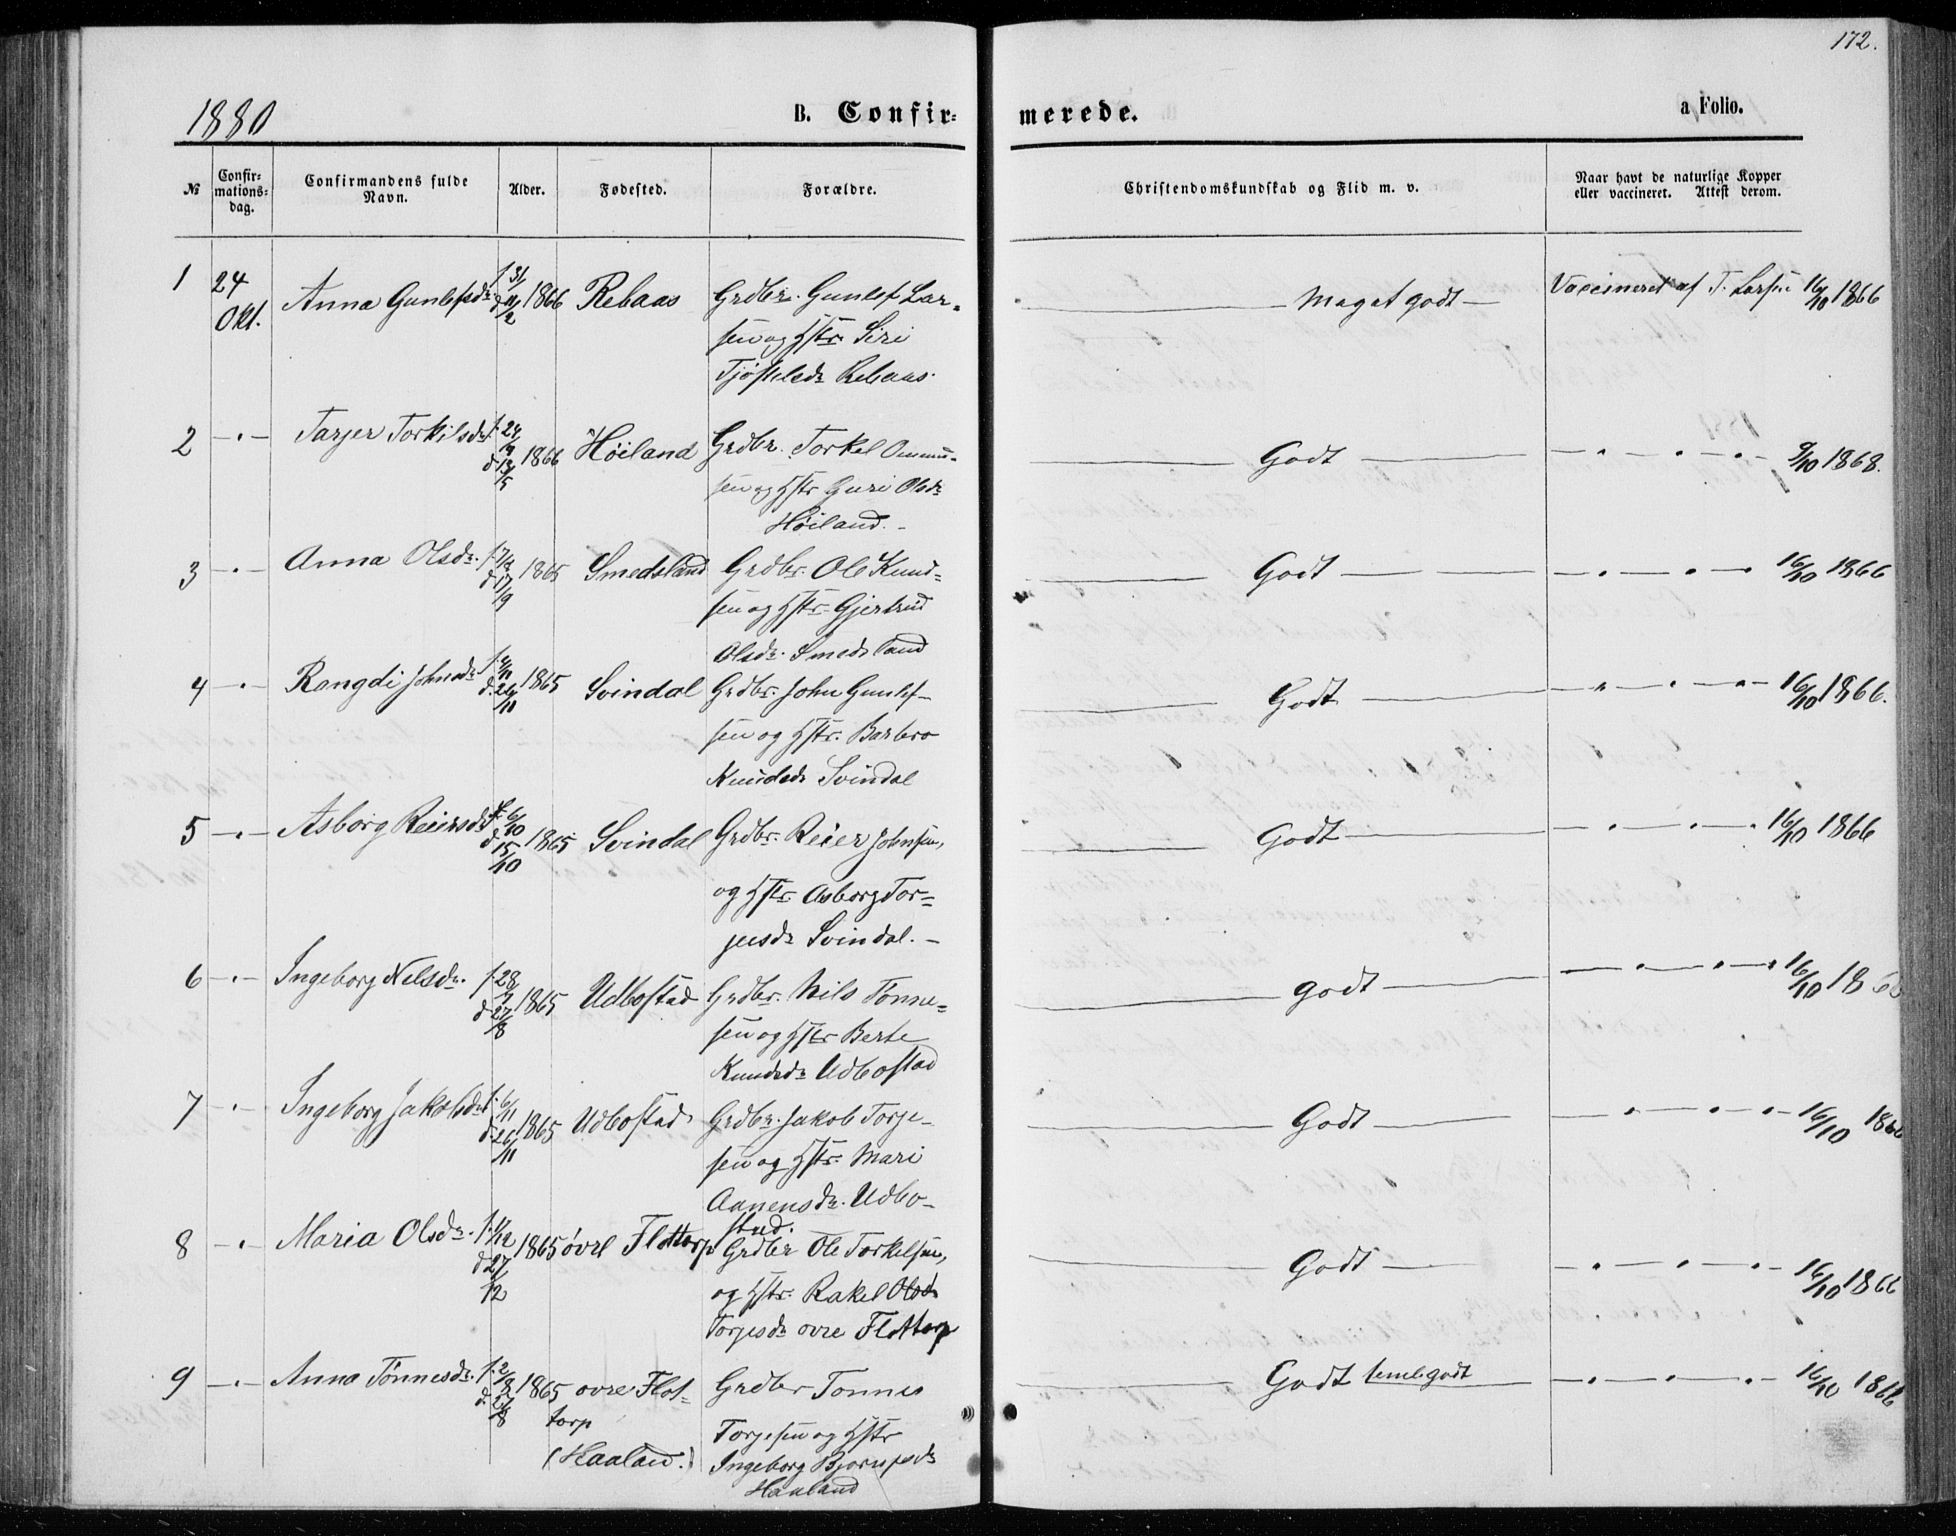 172.
1880
B. Confir-
merede.
a Folio.
№
Confir-
mations-
dag.
Confirmandens fulde
Navn.
Alder.
Fødested.
Forældre.
Christendomskundskab og Flid m. v.
Naar havt de naturlige Kopper
eller vaccineret. Attest derom.
1 24 Okt. Anna Gunlefsdr. 1866 Rebaas Grdbr. Gunlef Lar-
sen og Hstr. Siri
Tjøstelsdr Rebaas.
Meget godt
Vaccineret af T. Larsen 16/10 1866
2 -"- Tarjer Torkilsdr f. 24/4 d. 13/5 1866 Høiland Grdbr. Torkel Ommu-
sen og Hstr Guri Olsdr
Høiland.
Godt
-"- 9/10 1868.
3 -"- Anna Olsdr. f. 7/8 d. 17/9 1865 Smedsland Grdbr. Ole Knud-
sen og Hstr. Gjertrud
Olsdr. Smedsland
Godt
-"- 16/10 1866
4 -"- Rangdi Johnsdr f. d. 26/11 1865 Svindal Grdbr. John Gunlef-
sen og Hstr. Barbro
Knudsdr Svindal
Godt
-"- 16/10 1866.
5 -"- Asborg Reiersdr f. 6/10 d. 15/10 1865 Svindal Grdbr. Reier Johnsen,
og Hstr. Asborg Tor-
jusdr Svindal.
Godt
-"- 16/10 1866
6 -"- Ingeborg Nelsdr. f. 28/7 d. 27/8 1865 Udbostad Grdbr. Nils Tønne-
sen og Hstr Berte
Knudsdr Udbostad
godt
-"- 16/10 1866
7 -"- Ingeborg Jakobsdr f. 6/11 d. 26/11 1865 Udbostad Grdbr. Jakob Torje-
sen og Hstr. Mari
Aanensdr. Udbo-
stad.
Godt
-"- 16/10 1866
8 -"- Maria Olsdr. f. 11/12 d. 27/12 1865 øvre Flottorp Grdbr Ole Torkelsen,
og Hstr. Rakel Olsdr
Torjesdr ovre Flottorp
Godt
-"- 16/10 1866
9 -"- Anna Tønnesdr. f. 2/8 d. 27/8 1865 ovre Flot-
torp
(Haaland.)
Grdbr Tonnes
Torjesen og Hstr
Ingeborg Bjornsdr
Haaland
Godt temlgodt
-"- 16/10 1866